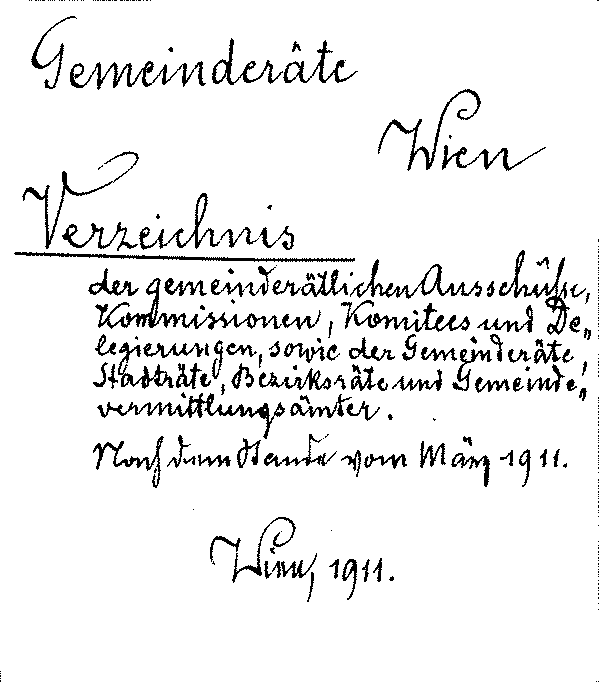 Gemeinderäte
Wien
Verzeichnis
der gemeinderätlichen Ausschüsse,
Kommissionen, Komitees und De„
legierungen, sowie der Gemeinderäte,
Stadträte, Bezirksräte und Gemeinde„
vermittlungsämter.
Nach dem Stande vom März 1911.
Wien, 1911.